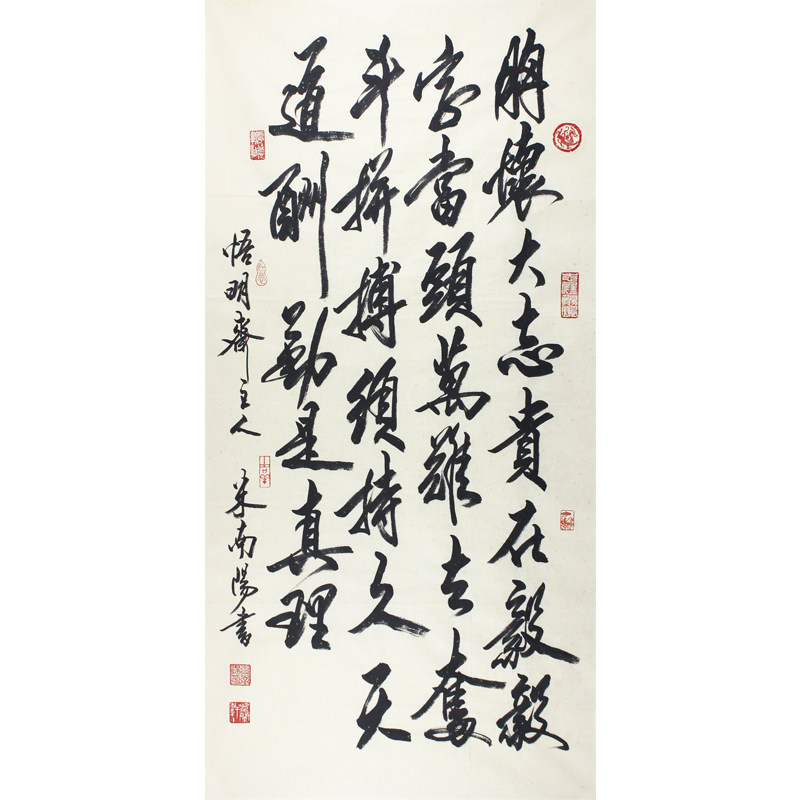 胸懷大志貴在毅毅
字當頭萬難去奮
斗拼搏須持久天
道酬勤是真理
悟明齋主人米南陽書